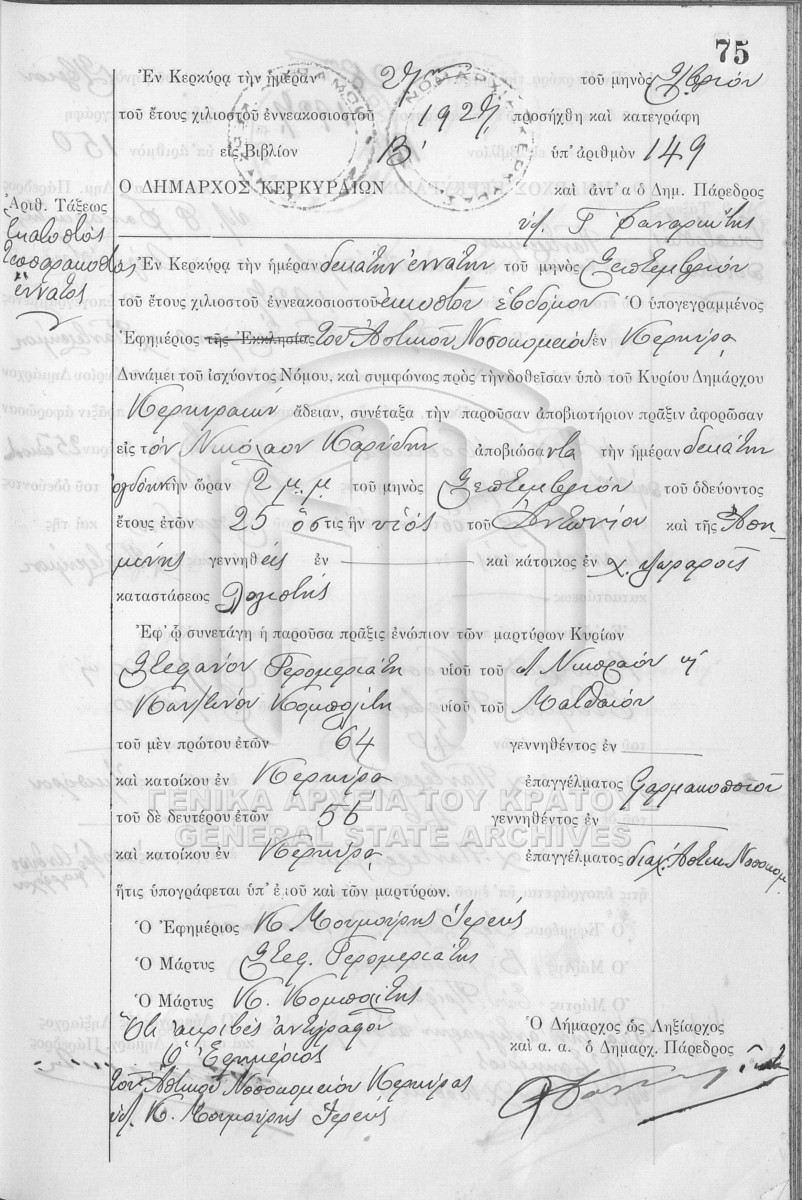 75
Ἐν Κερκύρᾳ τὴν ἡμέραν 27ην τοῦ μηνὸς 7/βρίου
τοῦ ἔτους χιλιοστοῦ ἐννεακοσιοστοῦ 1927 προσήχθη καὶ κατεγράφη
εἰς Βιβλίον Β' ὑπ' ἀριθμὸν 149
Ο ΔΗΜΑΡΧΟΣ ΚΕΡΚΥΡΑΙΩΝ καὶ ἀντ' α ὁ Δημ. Πάρεδρος
Ἀριθ. Τάξεως
Ἑκατοστὸς
τεσσαρακοστὸς
ἔννατος
Ἐν Κερκύρᾳ τὴν ἡμέραν δεκάτην ἐννάτην τοῦ μηνὸς Σεπτεμβρίου
τοῦ ἔτους χιλιοστοῦ ἐννεακοσιοστοῦ εἰκοστοῦ ἑβδόμου Ὁ ὑπογεγραμμένος
Ἐφημέριος τῆς Ἐκκλησίας τοῦ Ἀστικοῦ Νοσοκομείου ἐν Κερκύρᾳ
Δυνάμει τοῦ ἰσχύοντος Νόμου, καὶ συμφώνως πρὸς τὴν δοθεῖσαν ὑπὸ τοῦ Κυρίου Δημάρχου
Κερκυραίων ἄδειαν, συνέταξα τὴν παροῦσαν ἀποβιωτήριον πρᾶξιν ἀφορῶσαν
εἰς τὸν Νικόλαον Καρύδην ἀποβιώσαντα τὴν ἡμέραν δεκάτην
ὀγδόην ὥραν 2 μ.μ. τοῦ μηνὸς Σεπτεμβρίου τοῦ ὁδεύοντος
ἔτους ἐτῶν 25 ὅστις ἦν υἱὸς τοῦ Ἀντωνίου καὶ τῆς Ἀση-
μίνης γεννηθείς ἐν καὶ κάτοικος ἐν χ.
καταστάσεως
Ἐφ' ᾧ συνετάγη ἡ παροῦσα πρᾶξις ἐνώπιον τῶν μαρτύρων Κυρίων
Στεφάνου Γερομεριάτη υἱοῦ τοῦ
Κων/τίνου Κομπολίτη υἱοῦ τοῦ Ματθαίου
τοῦ μὲν πρώτου ἐτῶν 64 γεννηθέντος ἐν
καὶ κατοίκου ἐν Κερκύρᾳ ἐπαγγέλματος Φαρμακοποιοῦ
ΓΕΝΙΚΑ ΑΡΧΕΙΑ ΤΟΥ ΚΡΑΤΟΥΣ
τοῦ δὲ δευτέρου ἐτῶν 56 γεννηθέντος ἐν
GENERAL STATE ARCHIVES
καὶ κατοίκου ἐν Κερκύρᾳ ἐπαγγέλματος διαχ. Ἀστικ. Νοσοκομ.
ἥτις ὑπογράφεται ὑπ' ἐμοῦ καὶ τῶν μαρτύρων.
Ὁ Ἐφημέριος Κ. Μουμούρης Ἱερεὺς
Ὁ Μάρτυς Στεφ. Γερομεριάτης
Ὁ Μάρτυς Κ. Κομπολίτης
Ὅτι ἀκριβὲς ἀντίγραφον
Ὁ Ἐφημέριος
τοῦ Ἀστικοῦ Νοσοκομείου Κερκύρας
Κ. Μουμούρης Ἱερεὺς
Ὁ Δήμαρχος ὡς Ληξίαρχος
καὶ α. α. ὁ Δημαρχ. Πάρεδρος